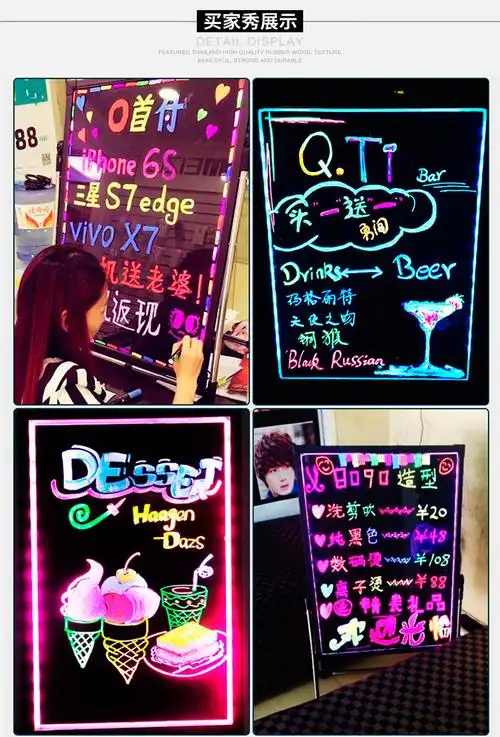 买家秀展示
DETAIL DISPLAY
FEATURED THAILAND HIGH QUALITY RUBBER WOOD, TEXTURE
BEAUTIFUL, STRONG AND DURABLE
88
0首付
iPhone 6S
三星 S7 edge
vivo X7
机送老婆!
返现
Q.Ti
Bar
买一送一
Drinks Beer
玛格丽特
天使之吻
Black Russian
DESSET
Haagen
Dazs
8090造型
洗剪吹 ¥20
纯黑色 ¥48
数码烫 ¥108
离子烫 ¥88
精美礼品
欢迎光临